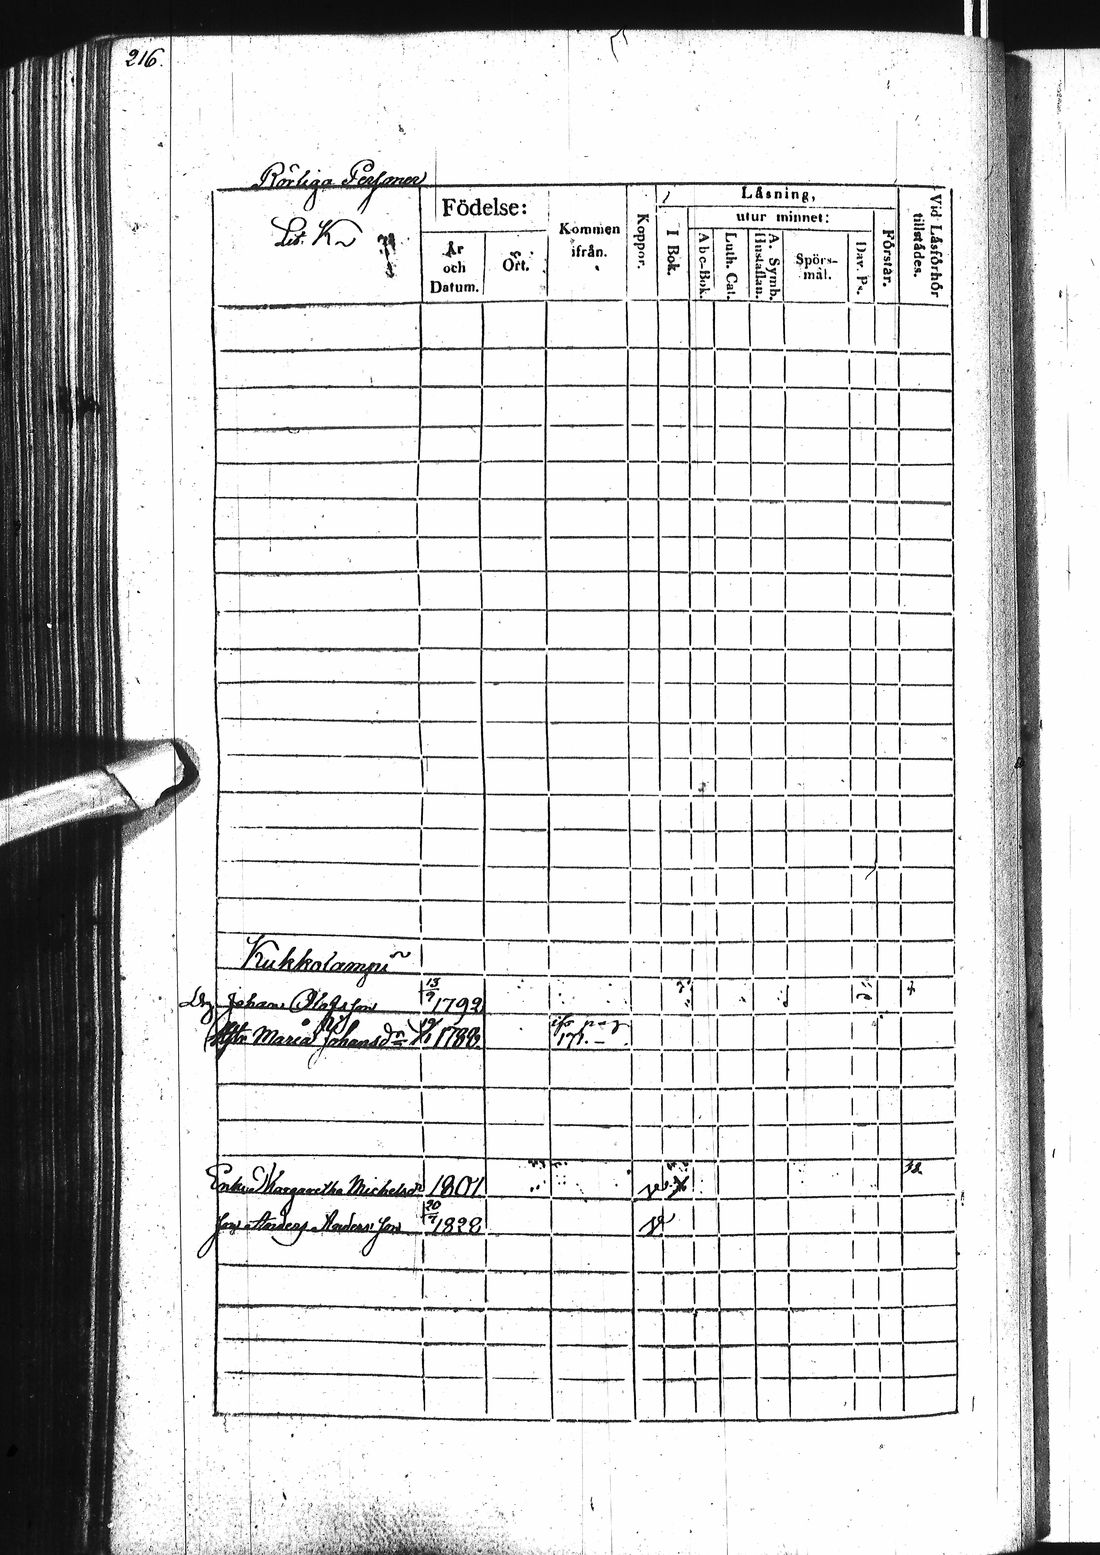 216.
Rörliga Personer
Lit. K
Födelse:
År och Datum.
Ort.
Kommen ifrån.
Koppor.
Läsning,
I Bok.
utur minnet:
Abc-Bok.
Luth. Cat.
A. Symb. Hustaflan.
Spörs-mål.
Dav. Ps.
Förstår.
Vid Läsförhör tillstädes.
Kukkolampi
Johan Olofsson 13/9 1792
Maria Johansdr 1788 171.
Enkan Margaretha Michelsdr 1801
Anders Anders son 20/7 1828